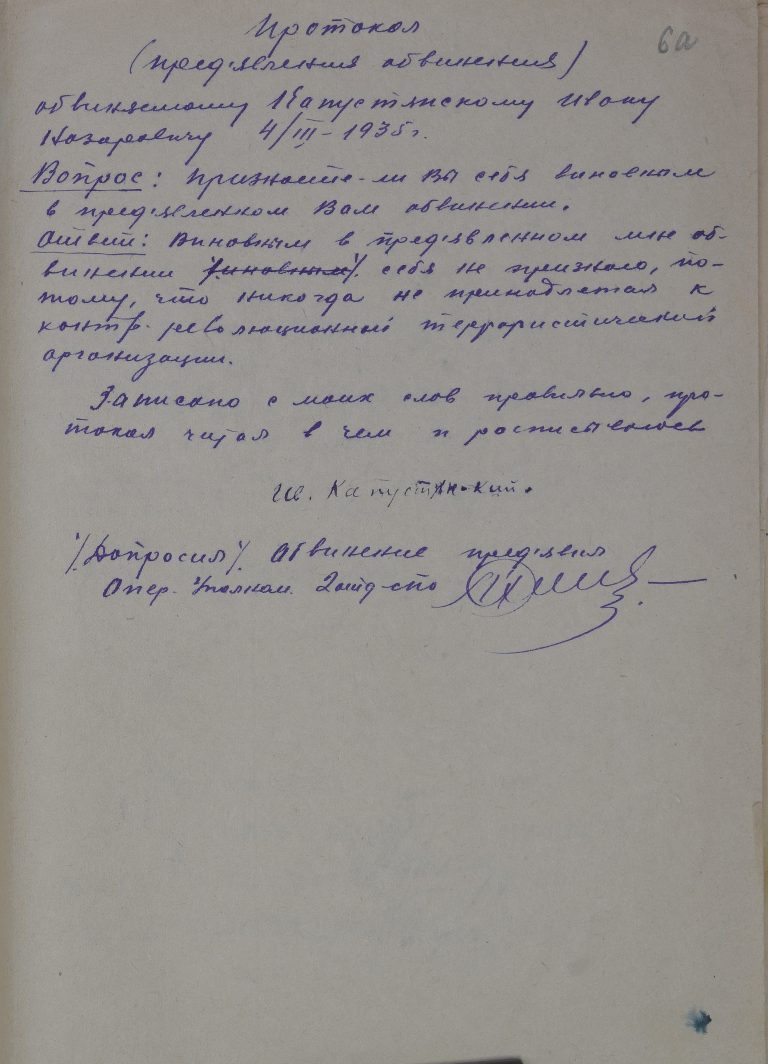 6а
Протокол
(пред'явления обвинения)
обвиняемому Капустянскому Ивану
Назаровичу 4/III-1935г.
Вопрос: Признаете-ли Вы себя виновным
в пред'явленном Вам обвинении.
Ответ: Виновным в пред'явленном мне об-
винении /виновным/ себя не признаю, по-
тому, что никогда не принадлежал к
контр-революционной террористической
организации.
Записано с моих слов правильно, про-
токол читал в чем и расписываюсь
Ив. Капустянский.
/Допросил/. Обвинение пред'явил
Опер. Уполном. 2 отд-